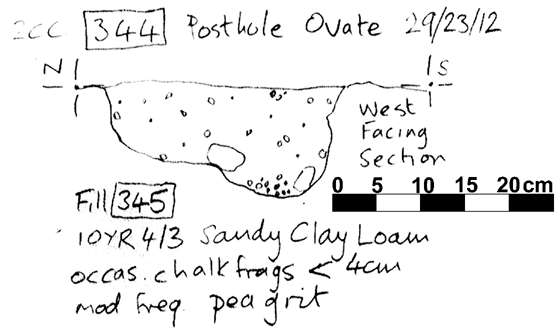 344 Posthole Ovate 29/23/12
N S
West
Facing
Section
0 5 10 15 20cm
Fill 345
10YR 4/3 Sandy Clay Loam
occas. chalk frags < 4cm
mod freq. pea grit